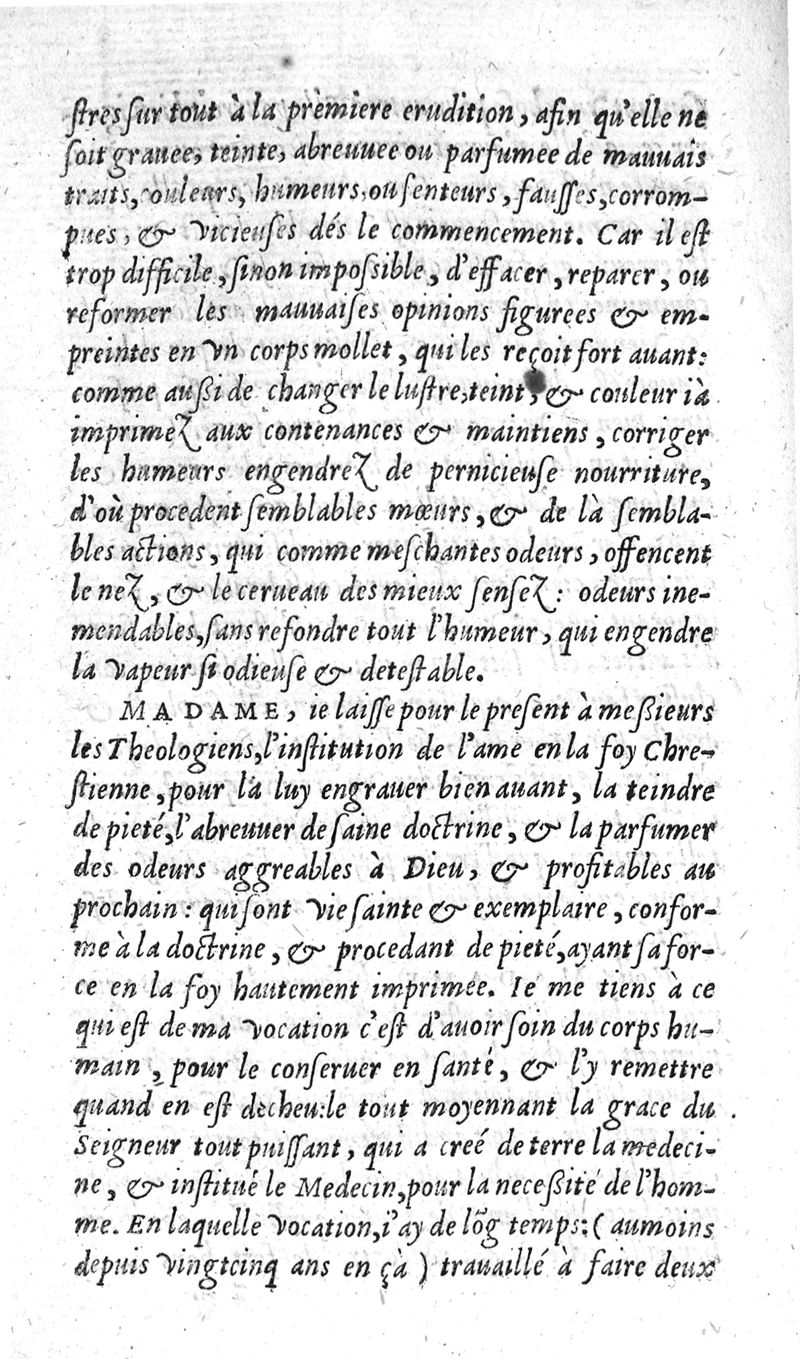 ſtres ſur tout à la premiere erudition, afin qu'elle ne
ſoit grauee, teinte, abreuuee ou parfumee de mauuais
traits, couleurs, humeurs, ou ſenteurs, fauſſes, corrom-
pues, & vicieuſes dés le commencement. Car il eſt
trop difficile, ſinon impoſsible, d'effacer, reparer, ou
reformer les mauuaiſes opinions figurees & em-
preintes en vn corps mollet, qui les reçoit fort auant:
comme auſsi de changer le luſtre, teint, & couleur ià
imprimez aux contenances & maintiens, corriger
les humeurs engendrez de pernicieuſe nourriture,
d'où procedent ſemblables mœurs, & de là ſembla-
bles actions, qui comme meſchantes odeurs, offencent
le nez, & le cerueau des mieux ſenſez: odeurs ine-
mendables, ſans refondre tout l'humeur, qui engendre
la vapeur ſi odieuſe & deteſtable.
MADAME, ie laiſſe pour le preſent à meſsieurs
les Theologiens, l'inſtitution de l'ame en la foy Chre-
ſtienne, pour la luy engrauer bien auant, la teindre
de pieté, l'abreuuer de ſaine doctrine, & la parfumer
des odeurs aggreables à Dieu, & profitables au
prochain: qui ſont vie ſainte & exemplaire, confor-
me à la doctrine, & procedant de pieté, ayant ſa for-
ce en la foy hautement imprimée. Ie me tiens à ce
qui eſt de ma vocation c'eſt d'auoir ſoin du corps hu-
main, pour le conſeruer en ſanté, & l'y remettre
quand en eſt decheu: le tout moyennant la grace du
Seigneur tout puiſſant, qui a creé de terre la medeci-
ne, & inſtitué le Medecin, pour la neceſsité de l'hom-
me. En laquelle vocation, i'ay de lõg temps: (aumoins
depuis vingtcinq ans en çà) trauaillé à faire deux